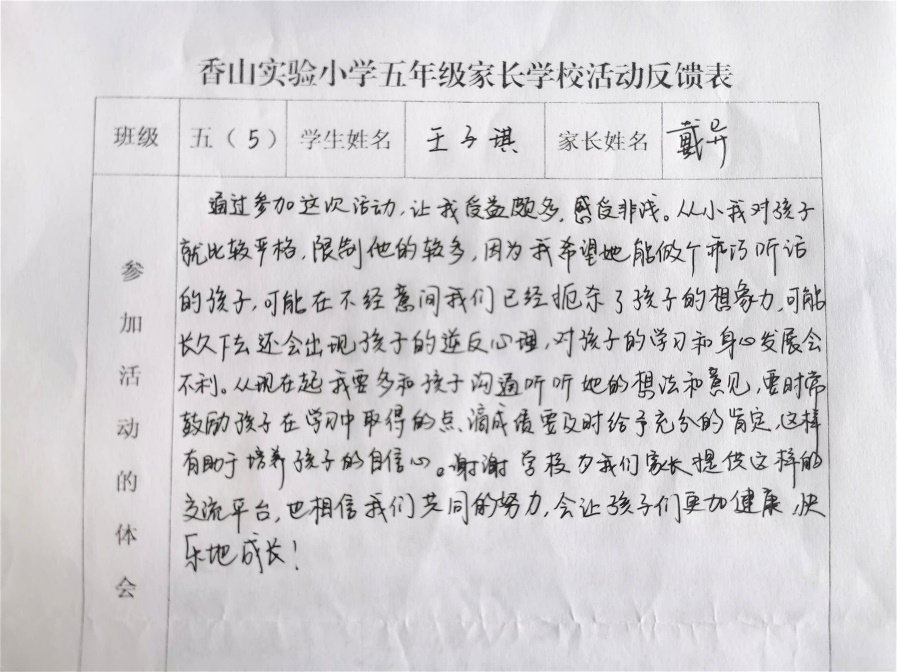 香山实验小学五年级家长学校活动反馈表
班级 五（5） 学生姓名 王子琪 家长姓名 戴异
参加活动的体会
通过参加这次活动，让我受益颇多，感受非浅。从小我对孩子
就比较严格，限制他的较多，因为我希望她能做个乖巧听话
的孩子，可能在不经意间我们已经扼杀了孩子的想象力，可能
长久下去还会出现孩子的逆反心理，对孩子的学习和身心发展会
不利。从现在起我要多和孩子沟通听听她的想法和意见，要时常
鼓励孩子在学习中取得的点、滴成绩要及时给予充分的肯定，这样
有助于培养孩子的自信心。谢谢学校为我们家长提供这样的
交流平台，也相信我们共同的努力，会让孩子们更加健康、快
乐地成长！